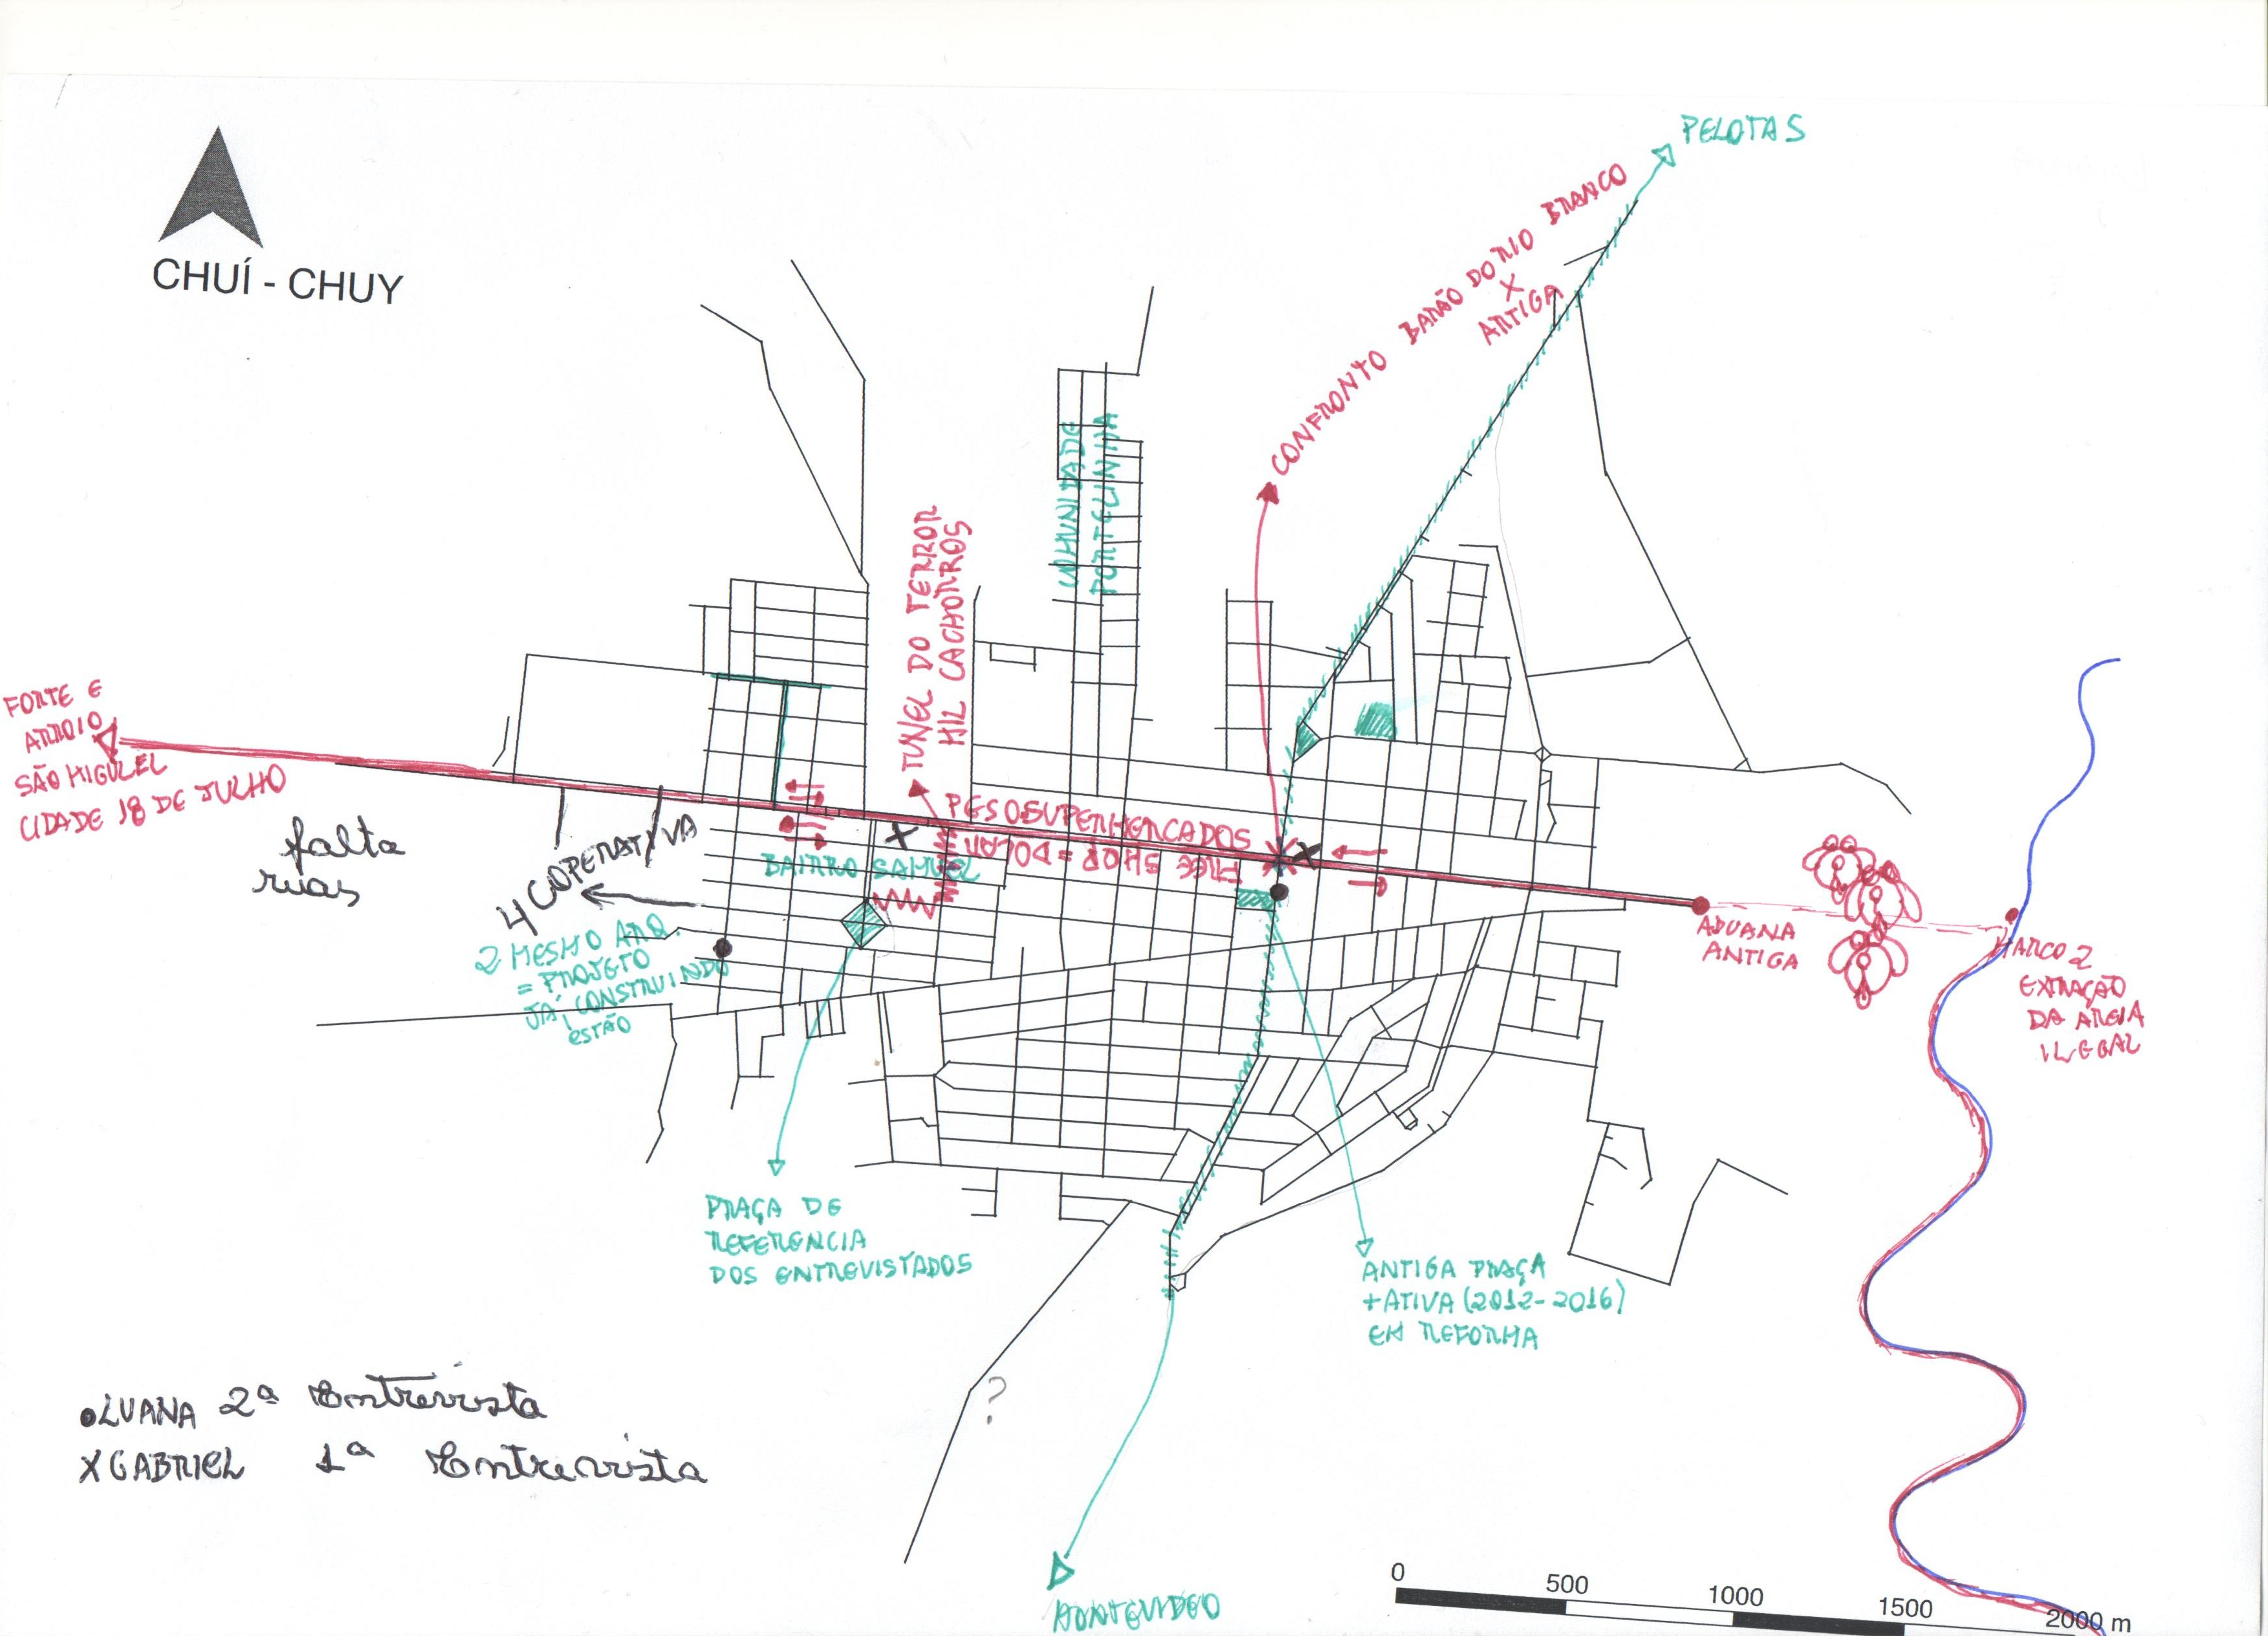 PELOTAS
CONFRONTO BARÃO DO RIO BRANCO
X
ARTIGA
CHUÍ - CHUY
COMUNIDADE
PORTELINHA
TUNEL DO TERROR
MIL CACHORROS
FORTE E
ARROIO
SÃO MIGULEL
CIDADE 18 DE JULHO
falta
ruas
4 COPERATIVA
PESO SUPERMERCADOS
FREE SHOP = DOLAR
BAIRRO SAMUEL
2 MESMO ARQ.
= PROJETO
JÁ CONSTRUINDO
ESTÃO
ADUANA
ANTIGA
MARCO 2
EXTRAÇÃO
DA AREIA
ILEGAL
PRAÇA DE
REFERENCIA
DOS ENTREVISTADOS
ANTIGA PRAÇA
+ATIVA (2012-2016)
EM REFORMA
?
LUANA 2ª Entrevista
X GABRIEL 1ª Entrevista
MONTEVIDEO
0 500 1000 1500 2000 m